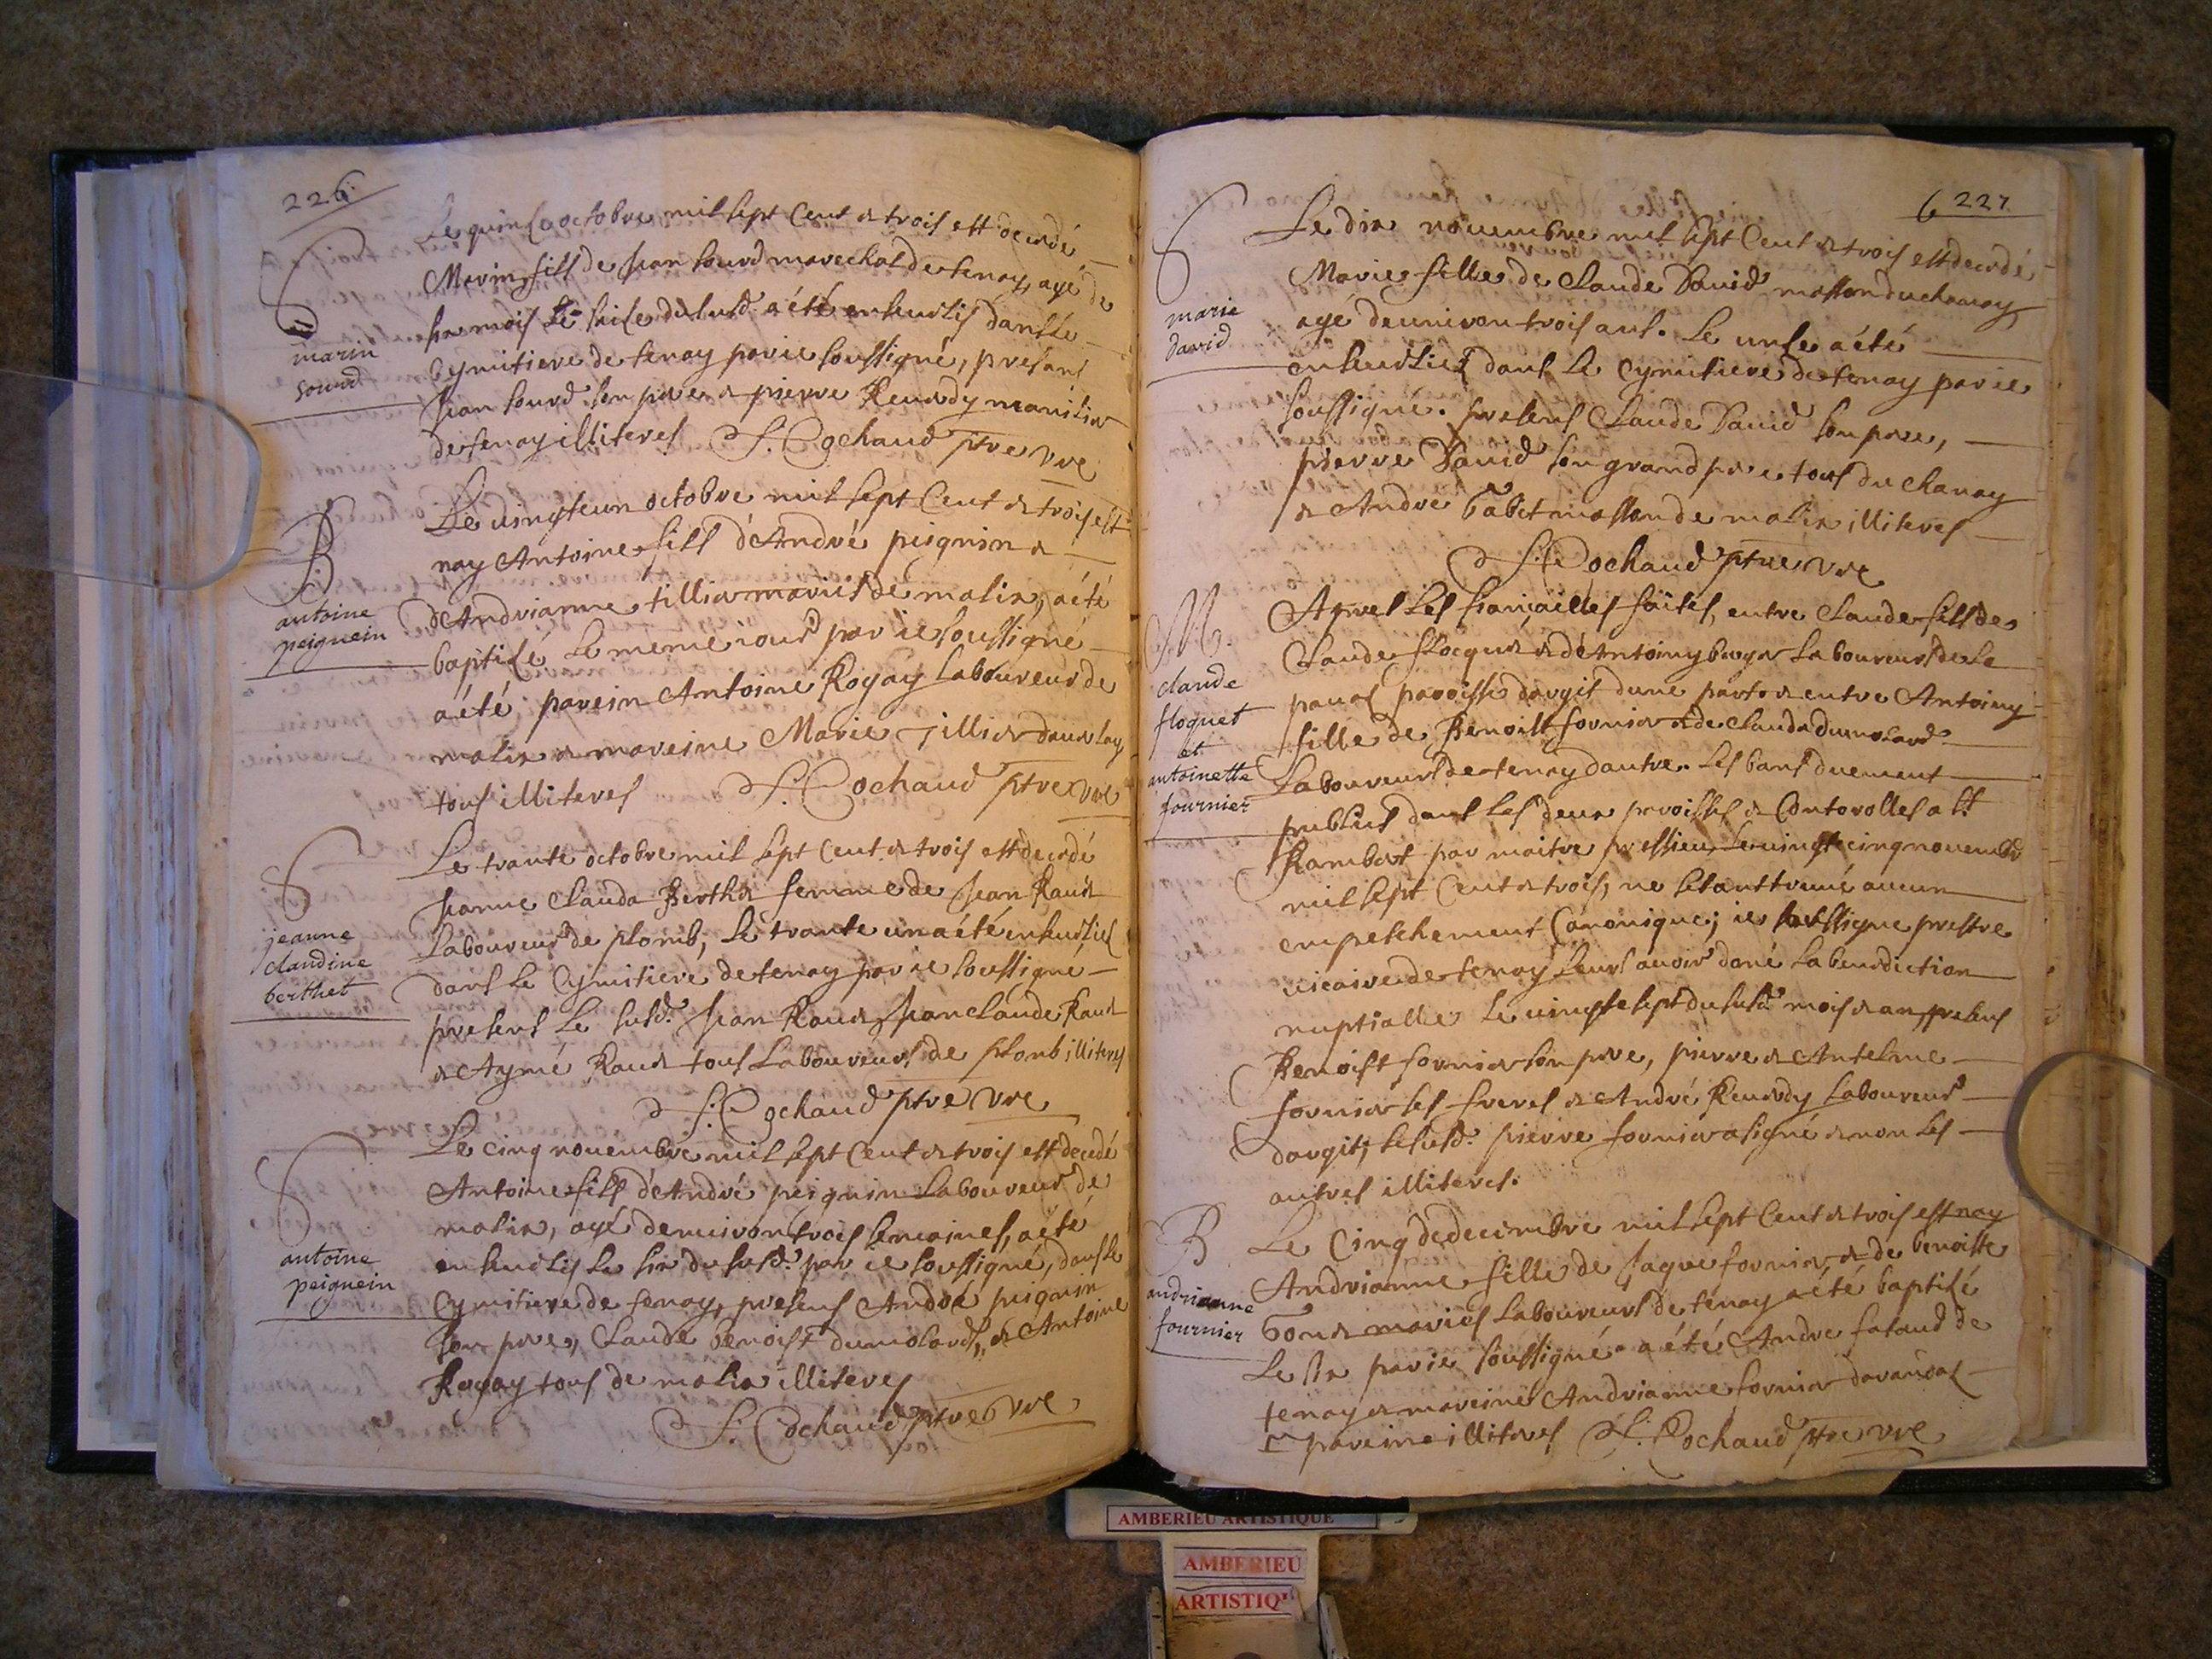 226
S
marin
sourd
Le quinse octobre mil sept Cent & trois est decedé
Marin fils de Jean sourd marechal de tenay, agé de
six mois Le seise dud. a été enseuelis dans le
Cymitiere de tenay par ie soussigné, presans
Jean sourd son pere & pierre Reuerdy
de tenay illiteres S. Cochaud ptre vre
B
antoine
peignein
Le uingteun octobre mil sept Cent & trois est
nay Antoine fils d'André peignin &
d'Andrianne tillier mariés de malix, a été
baptisé Le meme iour par ie soussigné
a été parein Antoine Rogay Laboureur de
malix & mareine Marie Tillier
tous illiteres S. Cochaud ptre vre
S
jeanne
claudine
berthet
Le trante octobre mil sept Cent & trois est decedé
Jeanne Clauda Berthet femme de Jean Raud
Laboureur de plomb, Le trante un a été enseuelies
dans Le Cymitiere de tenay par ie soussigné
presens Le susd. Jean Raud Jean Claude Raud
& Aymé Raud tous Laboureurs de plomb illiteres
S. Cochaud ptre vre
S
antoine
peignein
Le cinq nouembre mil sept Cent & trois est decedé
Antoine fils d'André peignin Laboureur de
malix, agé denuiron trois semaines, a été
enseuelis Le six du susd. par ie soussigné, dans le
Cymitiere de tenay, presens André peignin
son pere, Claude Benoist dumolard, & Antoine
Rogay tous de malix illiteres
S. Cochaud ptre vre
227
S
marie
david
Le dix nouembre mil sept Cent & trois est decedé
Marie fille de Claude Dauid masson du chanay
agé denuiron trois ans. Le unse a été
enseuelies dans Le Cymitiere de tenay par ie
soussigné. presens Claude Dauid son pere,
pierre Dauid son grand pere tous du chanay
& Andre Babet masson de malix illiteres
S. Cochaud ptre vre
M.
claude
floquet
et
antoinette
fournier
Apres Les fiançailles faites, entre Claude fils de
Claude floquet & d'Antoiny Laboureurs de la
paroisse dargit dune part & entre Antoiny
fille de Benoist fornier & de Clauda dumolard
Laboureurs de tenay dautre. Les bans duement
publiés dans Les deux paroisses & Contorolles a St
Rambert par maitre pressieu, Le uingtecinq nouembre
mil sept Cent & trois, ne setant trouué aucun
empetchement Canonique; ie soussigne prestre
uicaire de tenay Leurs auoir doné La benediction
nuptialle Le uingtesept du susd. mois & an, presens
Benoist fornier son pere, pierre & Antelme
fornier ses freres & André Reuerdy Laboureur
dargit; Le susd. pierre fornier a signé & non Les
autres illiteres.
B
andrianne
fournier
Le Cinq de decembre mil sept Cent & trois est nay
Andrianne fille de Jaque fornier, & de benoiste
Bonet mariés Laboureurs de tenay a été baptisé
Le six par ie soussigné a été Andre falaud de
tenay & mareine Andrianne fornier
parein illiteres S. Cochaud ptre vre
AMBERIEU ARTISTIQUE
AMBERIEU
ARTISTIQU